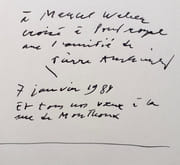 à Marcel Weber
croisé à Pontroyal
avec l'amitié de
Pierre
7 janvier 1989
Et tous nos vœux à la
rue de Monthoux